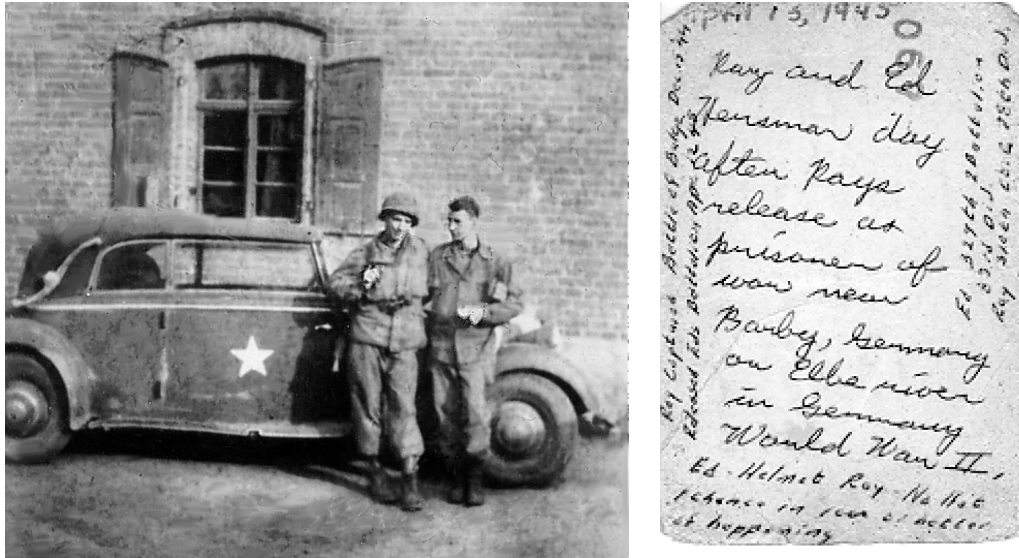 April 13, 1945
Ray and Ed
Hensman day
after Rays
release as
prisoner of
war near
Barby, Germany
on Elbe river
in Germany
World War II,
Ed - Helmet Ray - No Hat
chance in
of happening
Ray Captured Battle of Bulge Dec. 19 44
Released Eds Battalion Apr.
Ed 329th 2 Battalion
83rd Div
Ray